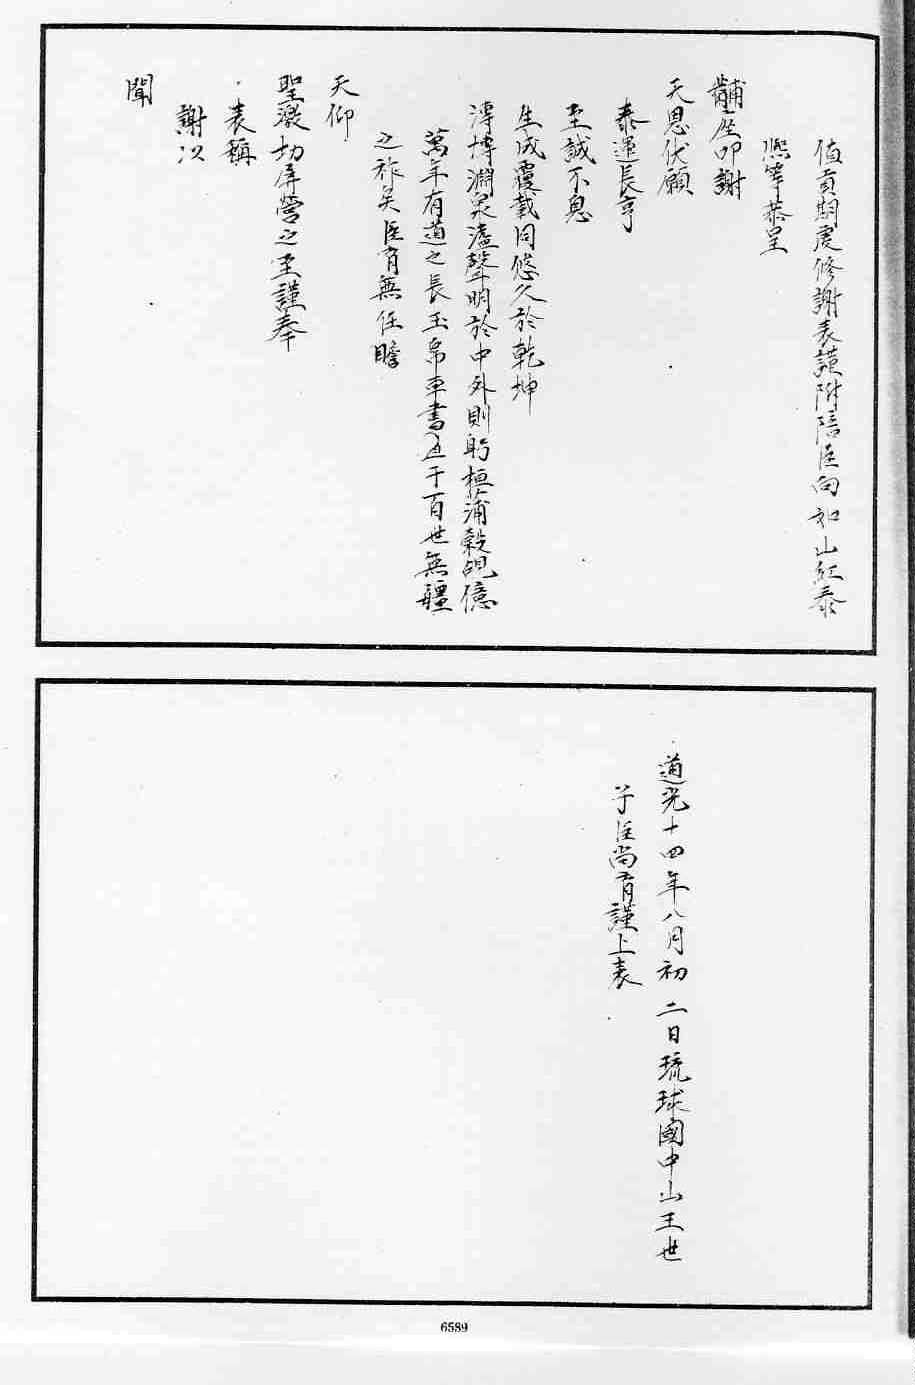 值貢期虔修謝表謹附陪臣向如山紅泰
熙等恭呈
黼座叩謝
天恩伏願
泰運長亨
至誠不息
生成覆載同悠久於乾坤
溥博淵泉溘聲明於中外則躬桓蒲穀覘億
萬年有道之長玉帛車書逓千百世無疆
之祚矣臣育無任瞻
天仰
聖激切屏營之至謹奉
表稱
謝以
聞
道光十四年八月初二日琉球國中山王世
子臣尚育謹上表
6589